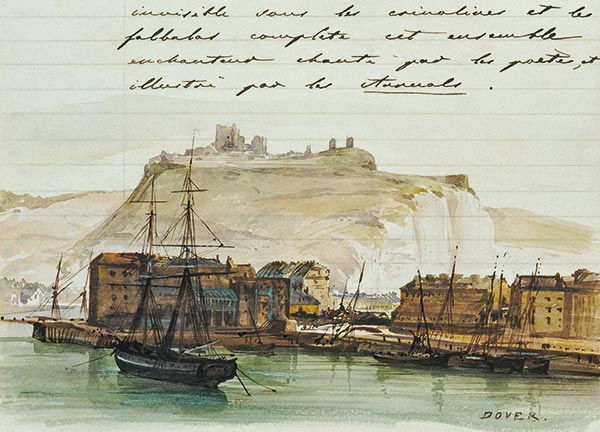 invisible sous les crinolines et les
falbalas complète cet ensemble
enchanteur chanté par les poètes, et
illustré par les Annuals.
DOVER.